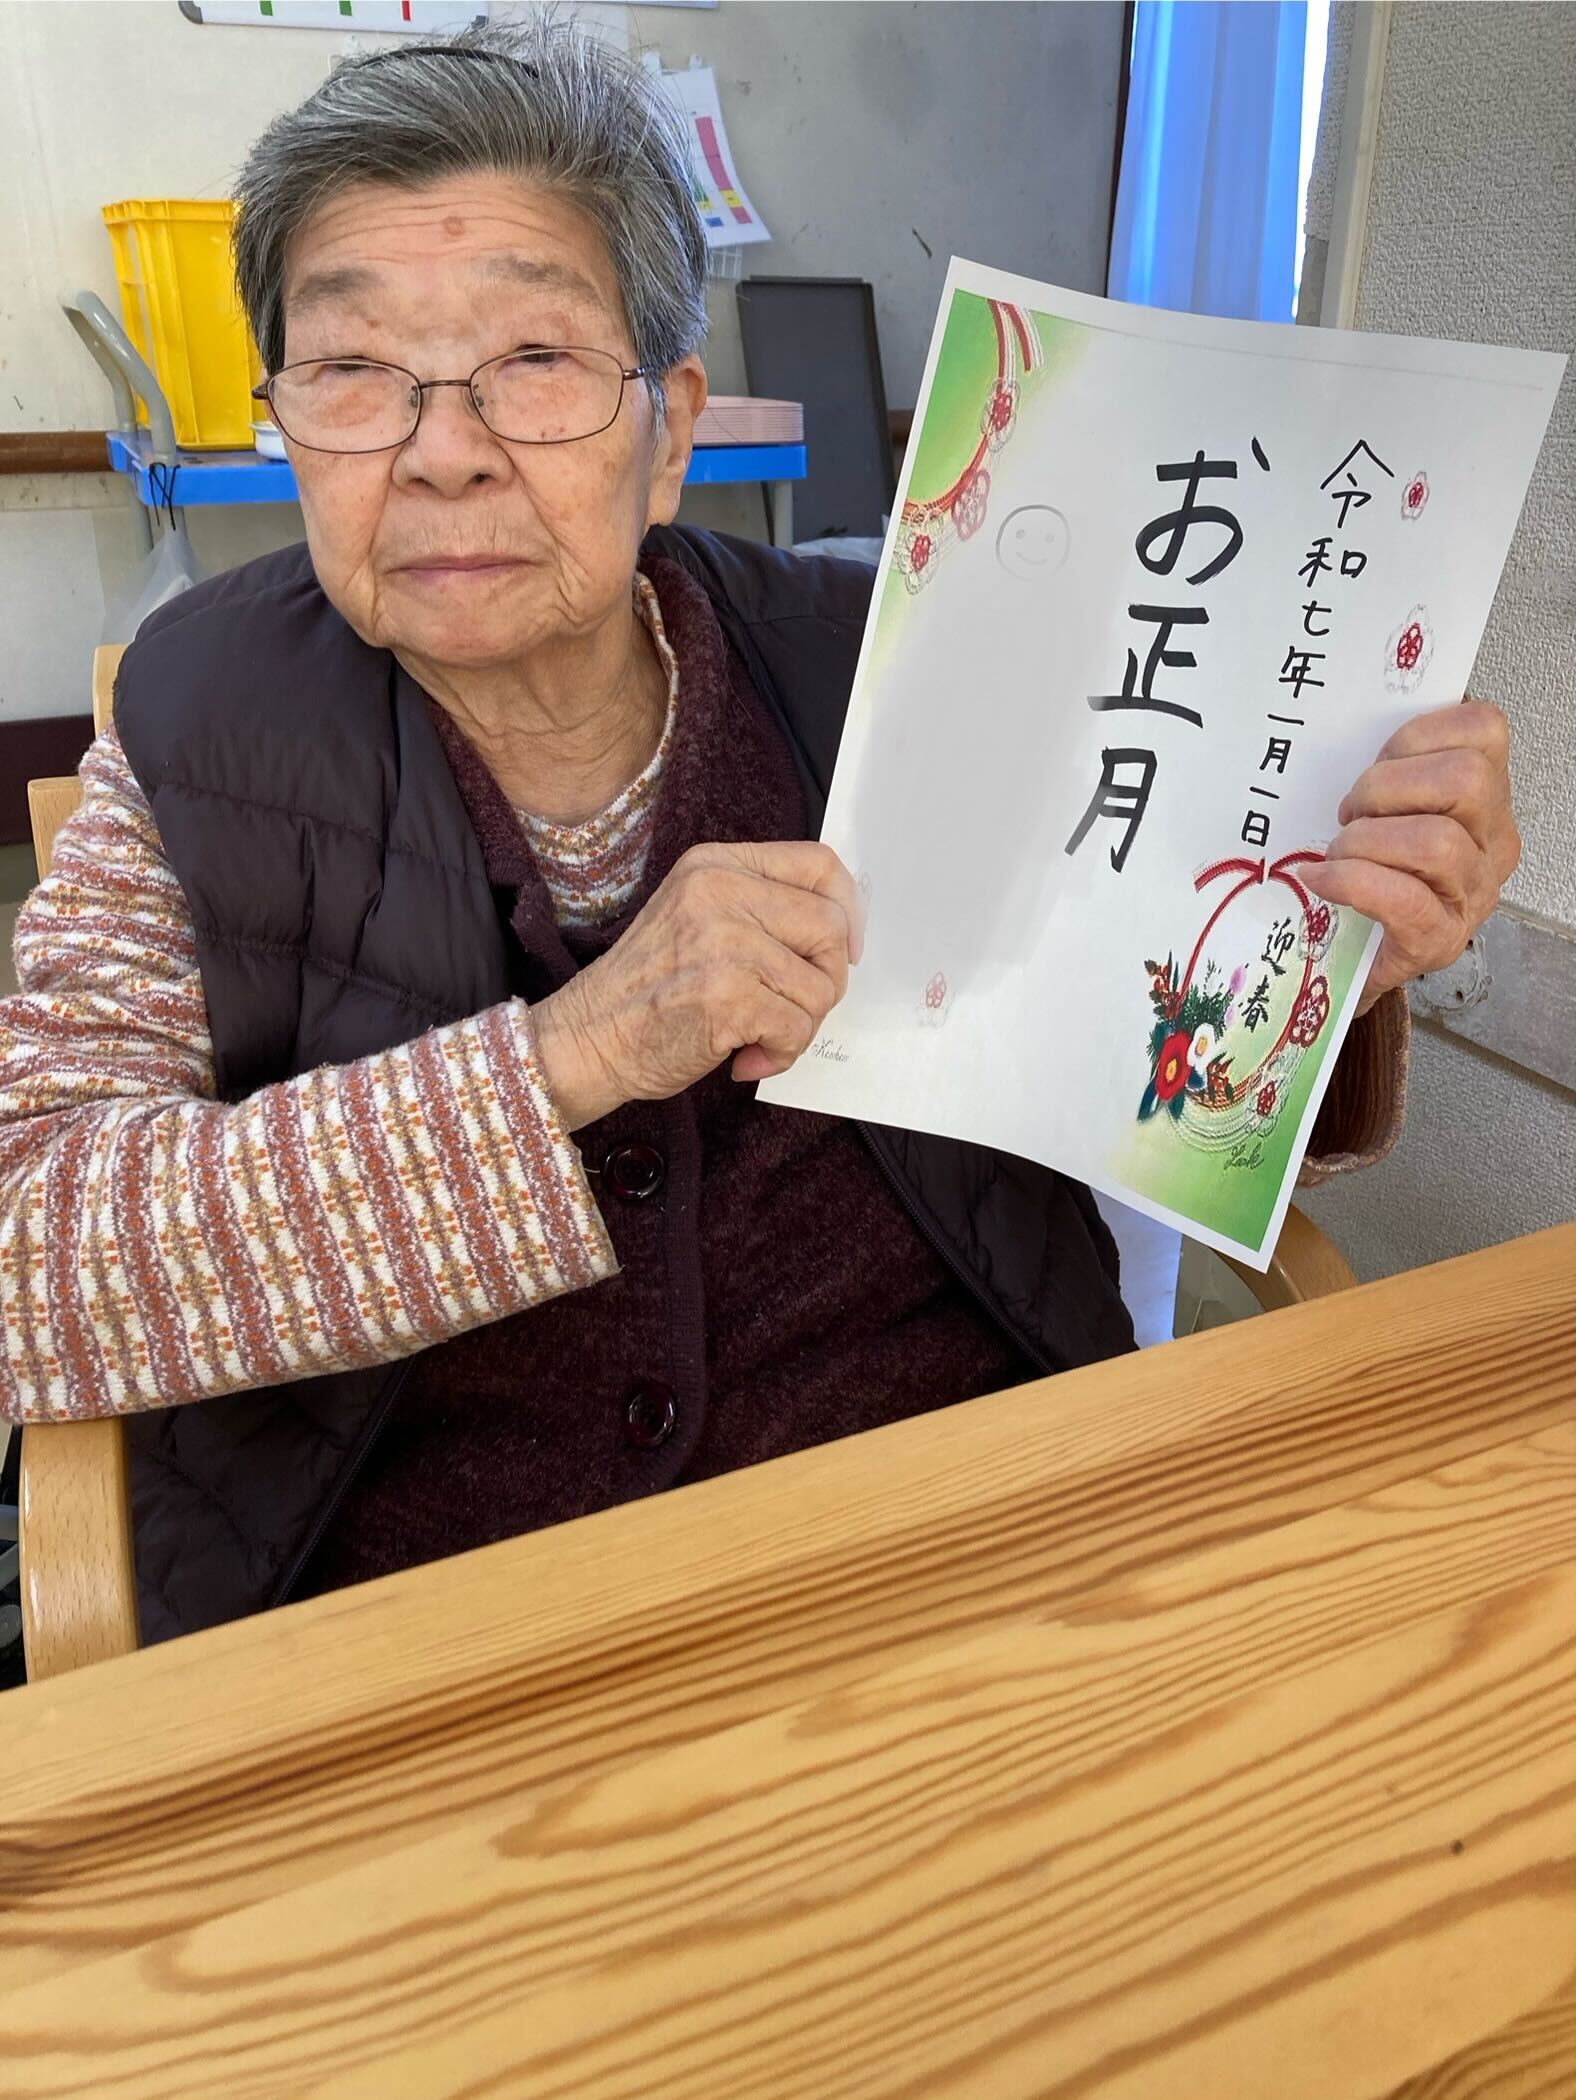 令和七年一月一日
お正月
迎春